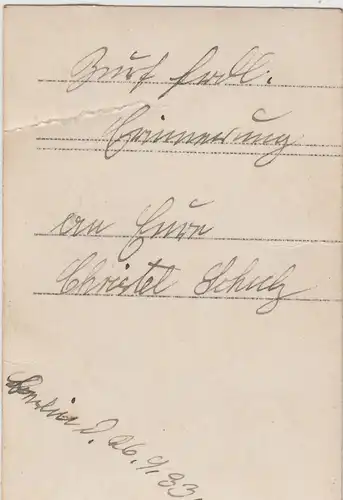 Zur frdl.
Erinnerung
an Eure
Christel Schulz
Berlin d. 26. 9. 33